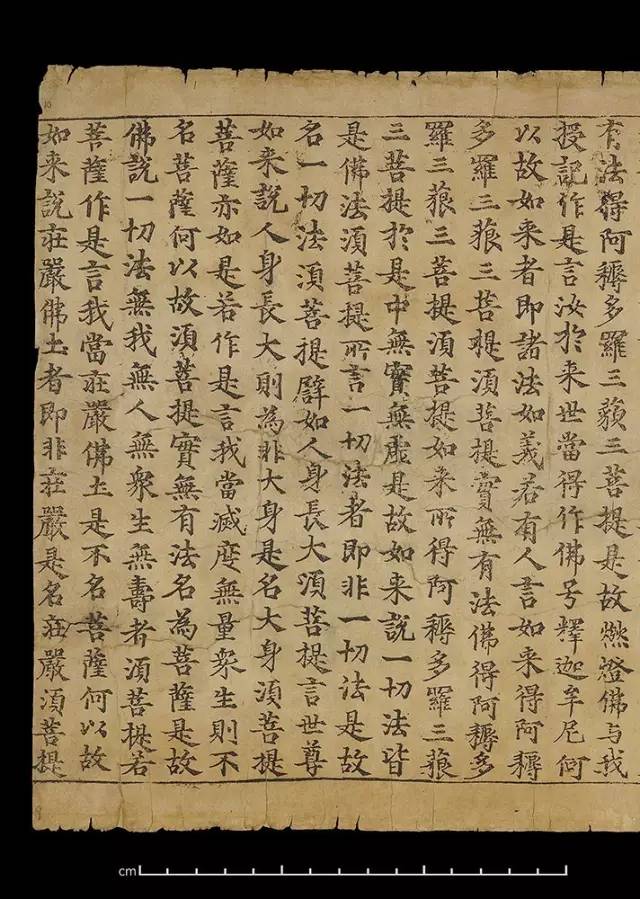 有法得阿耨多羅三藐三菩提是故燃燈佛与我
授記作是言汝於来世當得作佛号釋迦牟尼何
以故如来者即諸法如義若有人言如来得阿耨
多羅三藐三菩提須菩提實無有法佛得阿耨多
羅三藐三菩提須菩提如来所得阿耨多羅三藐
三菩提於是中無實無虛是故如来說一切法皆
是佛法須菩提所言一切法者即非一切法是故
名一切法須菩提譬如人身長大須菩提言世尊
如来說人身長大則為非大身是名大身須菩提
菩薩亦如是若作是言我當滅度無量衆生則不
名菩薩何以故須菩提實無有法名為菩薩是故
佛說一切法無我無人無衆生無壽者須菩提若
菩薩作是言我當莊嚴佛土是不名菩薩何以故
如来說莊嚴佛土者即非莊嚴是名莊嚴須菩提
cm